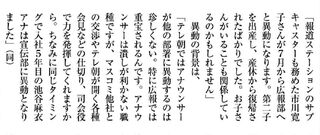 「報道ステーションのサブ
キャスターも務めた市川寛
子さんが7月から広報部へ
と異動になります。第二子
を出産し、産休から復帰さ
れたばかりでした。お子さ
んがいることも関係してい
るのかもしれません」
異動の背景は、
「テレ朝ではアナウンサー
が他の部署に異動するのは
珍しくない。特に広報では
重宝されるんです。アナウ
ンサーは潰しが利かない職
種ですが、マスコミ他社と
の交渉やテレ朝が開く各種
会見などの仕切り、司会役
で力を発揮してくれますか
ら。ちなみに同じタイミン
グで入社5年目の池谷麻衣
アナは宣伝部に異動となり
ました」(同)